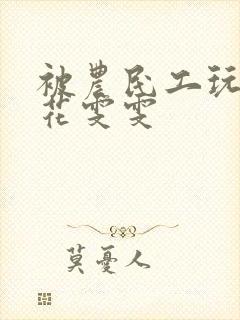 被農民工玩
花雯雯
莫憂人